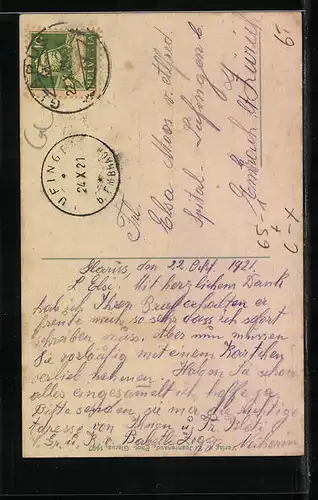 HELVETIA
LUFINGEN
24.X.21
b. EMBRACH
Frl.
Elsa Moos
Spital Lufingen b.
Embrach Kt Zürich
65-1
+
U-X
Glarus, den 22. Okt. 1921.
L. Elsi. Mit herzlichem Dank
hab ich Ihren Brief erhalten er
freute mich so sehr dass ich sofort
schreiben muss. Aber nun müssen
Sie vorläufig mit einem Kärtchen
vorlieb nehmen. Haben Sie schon
alles eingesammelt ich hoffe ja
Bitte senden sie mir die richtige
Adresse von Ihnen u.
Gr. u. K. v. Babette
Verlag Jeanrenaud, Phot. Glarus